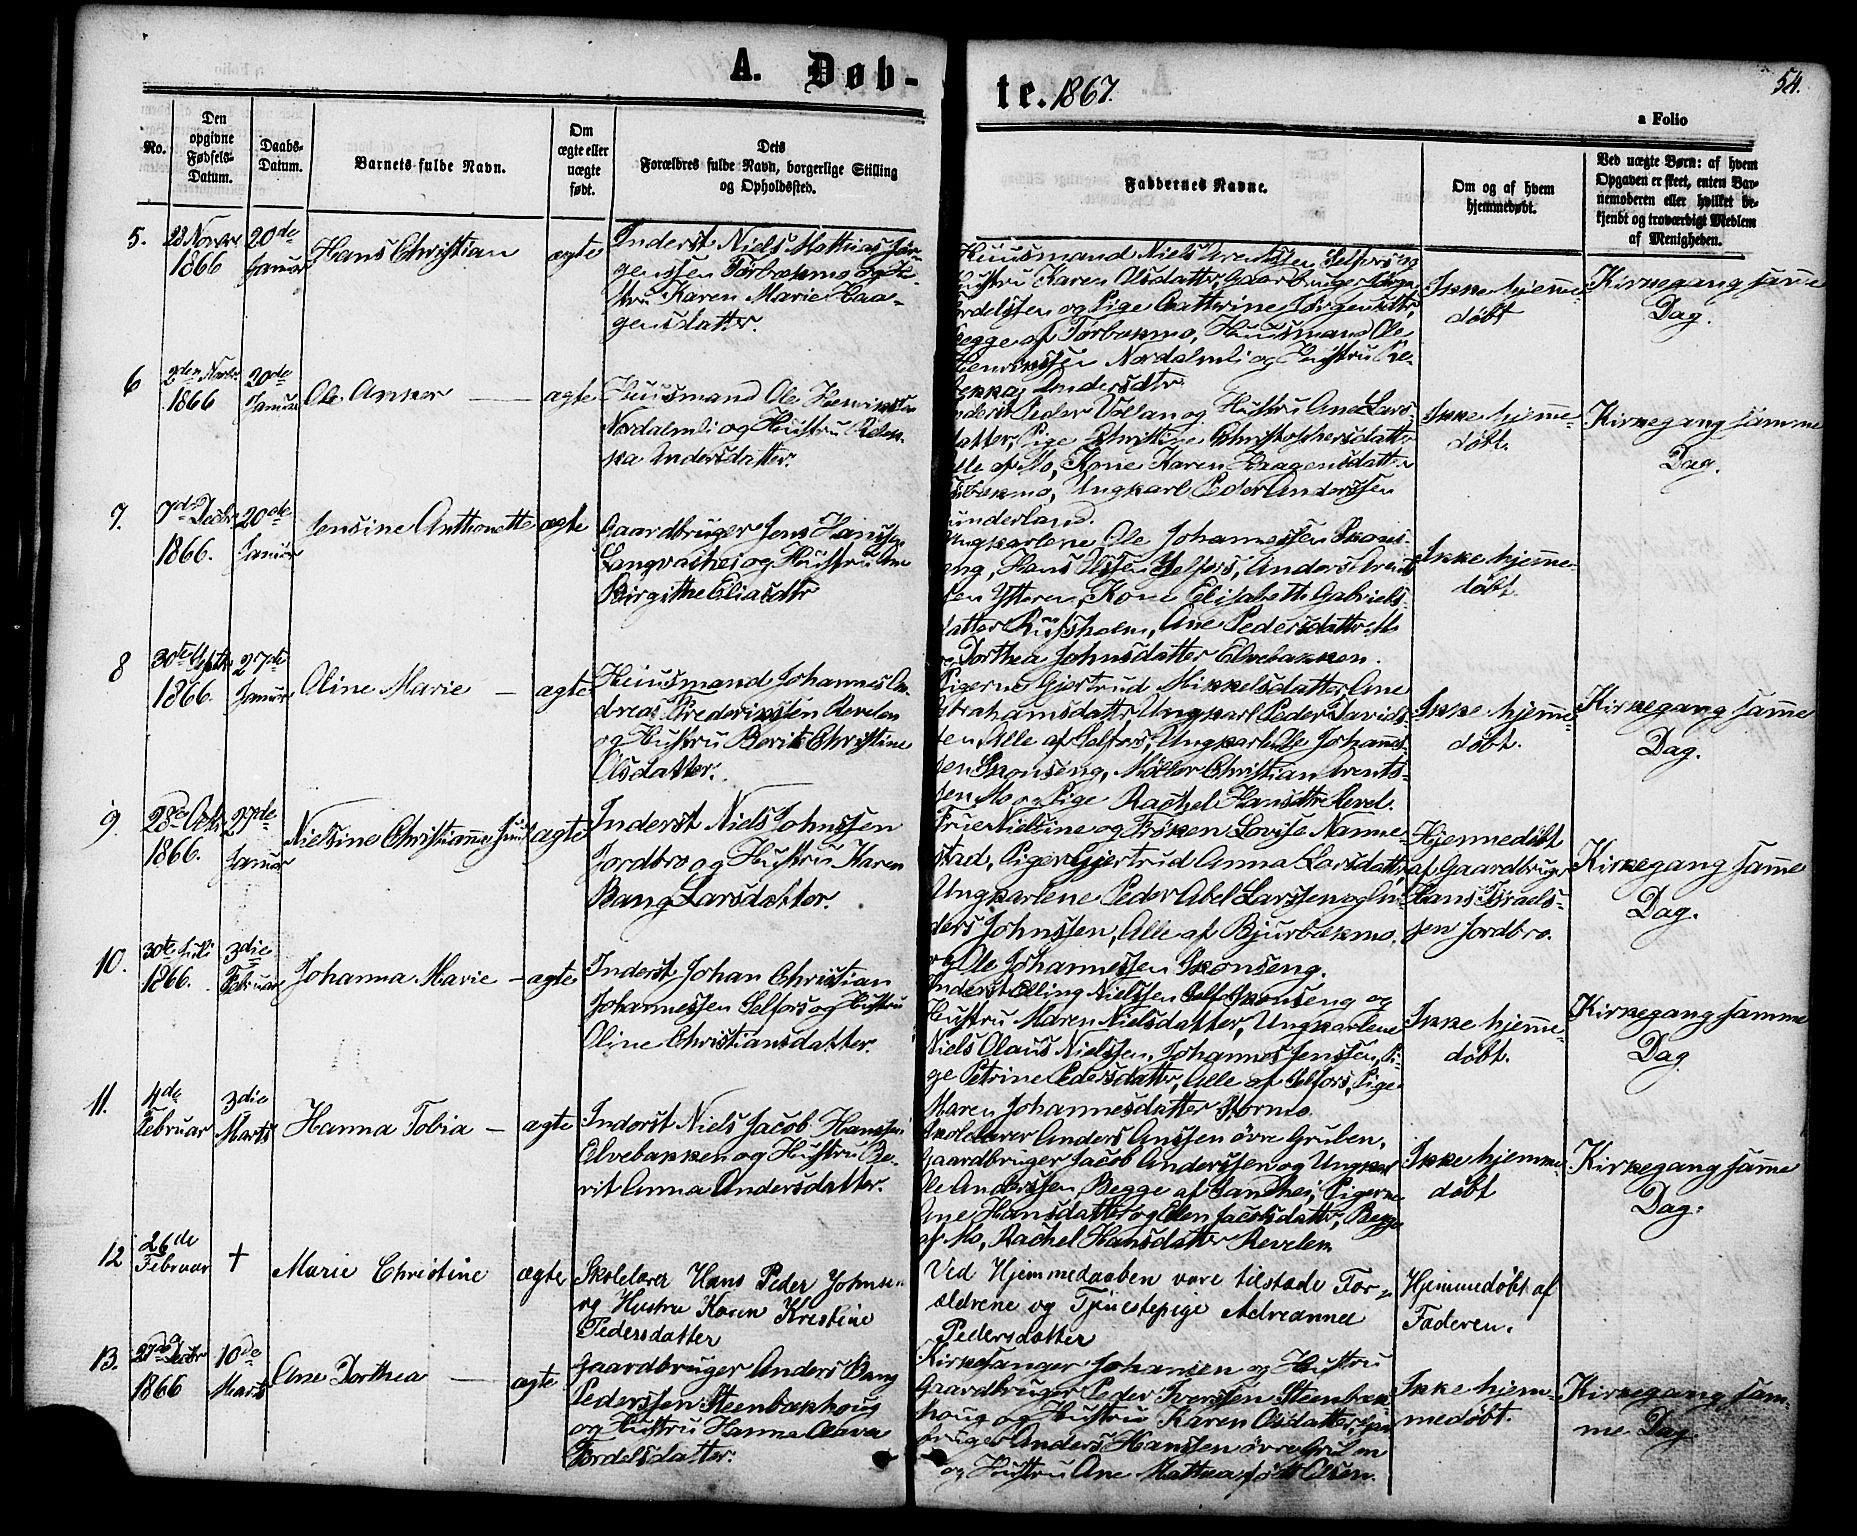 A. Døb-
te. 1867.
54.
a Folio
No.
Den
opgivne
Fødsels-
Datum.
Daabs-
Datum.
Barnets fulde Navn.
Om
ægte eller
uægte
født.
Dets
Forældres fulde Navn, borgerlige Stilling
og Opholdssted.
Faddernes Navne.
Om og af hvem
hjemmedøbt.
Ved uægte Børn: af hvem
Opgaven er skeet, enten Bar-
nemoderen eller hvilket be-
kjendt og troværdigt Medlem
af Menigheden.
5.
1866
20de
Januar
Hans Christian
ægte
Inderst Niels Mathias Jør-
genssen Torbækmo og Hu-
stru Karen Marie Haa-
gensdatter.
Huusmand Niels Arentssen Selfors og
Hustru Karen Olsdatter, Gaardbruger Jørgen
Tordelssen og Pige Catherine Jørgensdtr,
Begge af Torbækmo, Huusmand Ole
Henrikssen Nordalmli og Hustru Re-
bekka Andersdtr.
Ikke hjemme-
døbt
Kirkegang samme
Dag.
6
2den Novbr
1866
20de
Januar
Ole Anker
ægte
Huusmand Ole Henrikssen
Nordalmli og Hustru Rebek-
ka Andersdatter.
Inderst Peder Vollan og Hustru Ane Lars-
datter, Pige Christine Christophersdatter
Alle af Mo, Kone Karen Haagensdatter
Torbækmo, Ungkarl Peder Anderssen
Ikke hjemme-
døbt.
Kirkegang samme
Dag.
7.
7de Decbr
1866.
20de
Januar
Jensine Anthonette
ægte
Gaardbruger Jens Hanssen
Langvashei og Hustru Ane
Birgitthe Eliasdtr
Ungkarlene Ole Johannessen Skons-
eng, Hans Olssen Selfors, Anders Arent-
sen Ytteren, Kone Elisabeth Gabriels-
datter Ruusholm, Ane Pedersdatter
Dorthea Johnsdatter Elvebakken.
Ikke hjemme-
døbt.
8
30te Septbr
1866.
27de
Januar
Oline Marie
ægte
Huusmand Johannes An-
dreas Frederikssen Revelen
og Hustru Berit Christine
Olsdatter.
Pigerne Gjertrud Mikkelsdatter Ane
Abrahamsdatter, Ungkarl Peder Davids-
sen, Alle af Selfors, Ungkarl Ole Johannes-
sen Skonseng, Møller Christian Arents-
sen Mo og Pige Rachel Hansdtr Revel.
Ikke hjemme-
døbt.
Kirkegang samme
Dag.
9.
28de Octbr
1866.
27de
Januar
Nielsine Christianna
ægte
Inderst Niels Johnssen
Jordbro og Hustru Karen
Bang Larsdatter.
Frue Nielsine og Frøken Lovise Nanne-
stad, Piger Gjertrud Anna Larsdatter
Ungkarlene Peder Abel Larssen og An-
ders Johnssen, Alle af Bjurbækmo,
og Ole Johannessen Skonseng.
Hjemmedøbt
af Gaardbruger
Hans Israels-
sen Jordbro.
Kirkegang samme
Dag.
10.
30te Juli
1866.
3die
Februar
Johanna Marie
ægte
Inderst Johan Christian
Johannessen Selfors og Hustru
Oline Christiansdatter.
Inderst Elling Nielssen Skonseng og
Hustru Maren Nielsdatter, Ungkarlene
Niels Olaus Nielssen, Johannes Jenssen, Pi-
ge Petrine Pedersdatter, Alle af Selfors, Pige
Maren Johannesdatter Stormo.
Ikke hjemme-
døbt.
Kirkegang samme
Dag
11.
4de
Februar
3die
Marts
Hanna Tobia
ægte
Inderst Niels Jacob Hanssen
Elvebakken og Hustru Be-
rit Anna Andersdatter.
Skolelærer Anders Anssen øvre Gruben,
Gaardbruger Jacob Anderssen og Ungkarl
Ole Anderssen Begge af Sandhei, Pigerne
Ane Hansdatter og Ellen Jacobsdatter, Begge
af Mo, Rachel Hansdatter Revelen
Ikke hjemme-
døbt
Kirkegang samme
Dag.
12
26de
Februar
†
Marie Christine
ægte
Skolelærer Hans Peder Johnsen
og Hustru Karen Kristine
Pedersdatter
Ved Hjemmedaaben vare tilstæde For-
ældrene og Tjenestepige Adreanna
Pedersdatter
Hjemmedøbt af
Faderen.
13.
27de Decbr
1866
10de
Marts
Ane Dorthea
ægte
Gaardbruger Anders Bang
Pederssen Steenbækhoug
og Hustru Hanna Olava
Tordelsdatter.
Kirkesanger Johansen og Hustru
Gaardbruger Peder Iverssen Steenbæk-
houg og Hustru Karen Olsdatter, Gaard-
bruger Anders Hanssen øvre Gruben
og Hustru Ane Mathea født Olsen.
Ikke hjem-
medøbt.
Kirkegang sam-
me Dag.